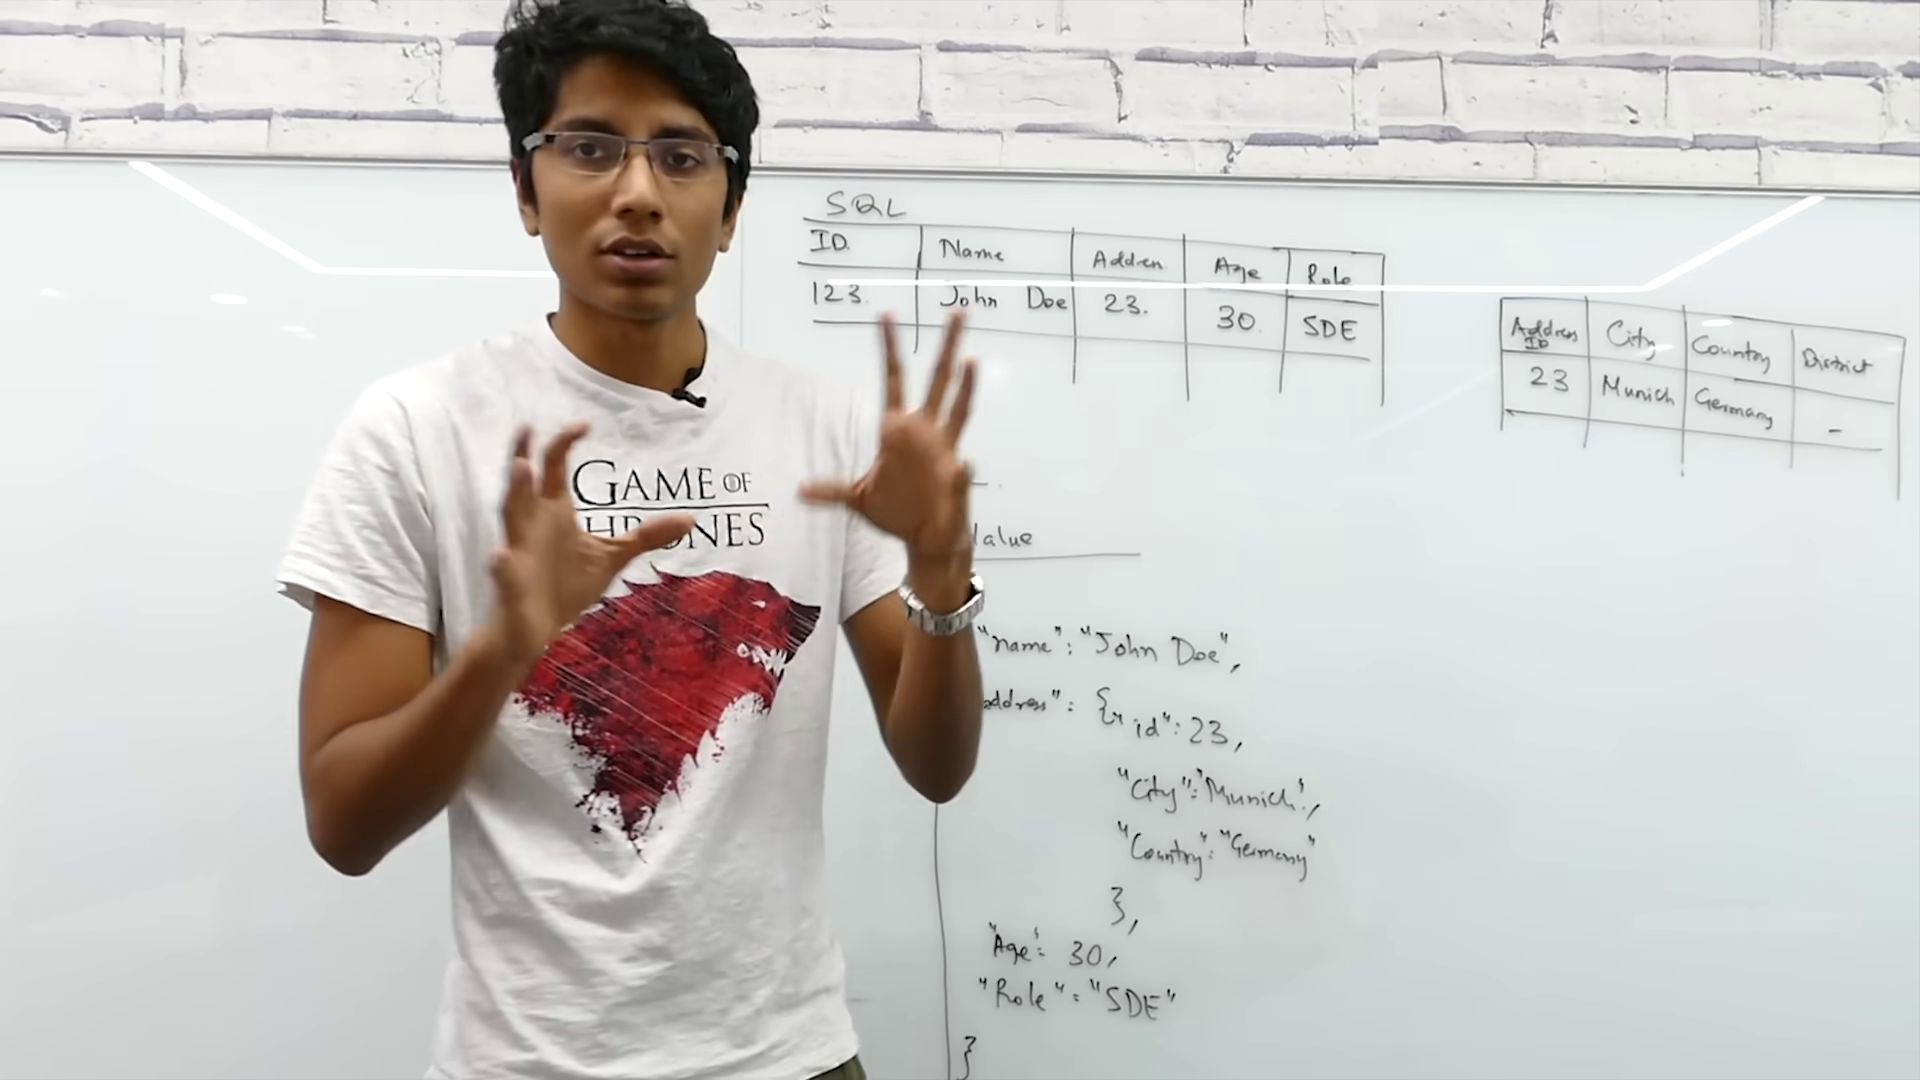 SQL
ID. Name Addren Age Role
123. John Doe 23. 30. SDE
Address ID City Country District
23 Munich Germany -
GAME OF
THRONES
Value
"name": "John Doe",
address": {"id": 23,
"City": "Munich",
"Country": "Germany"
},
"Age": 30,
"Role": "SDE"
}